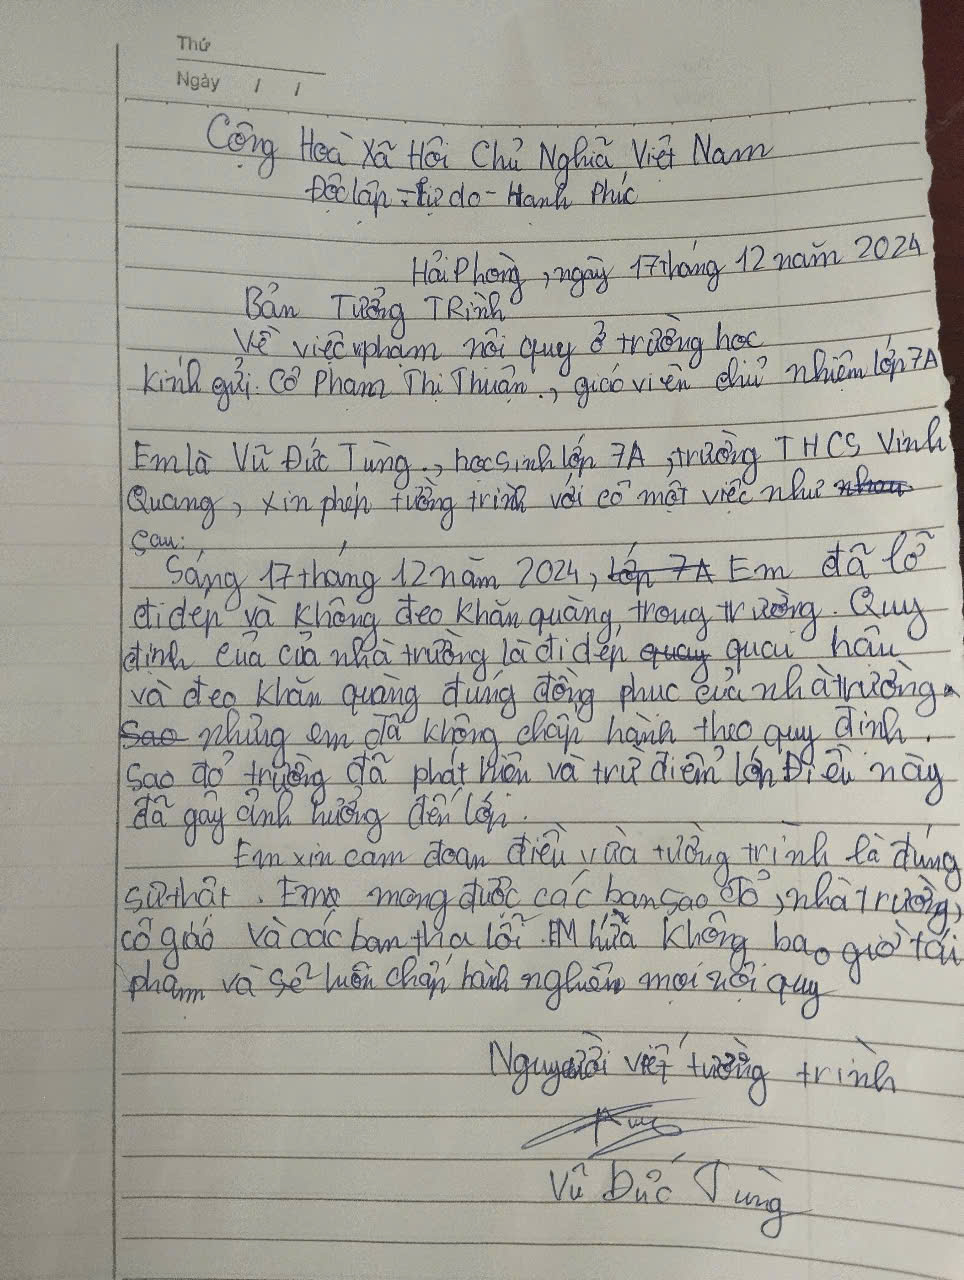 Thứ
Ngày / /
Cộng Hoà Xã Hôi Chủ Nghĩã Việt Nam
Độc lập - tự do - Hanh Phúc
Hải Phong, ngày 17 tháng 12 năm 2024
Bản Tưởng TRình
Về việc vpham nôi quy ở trường học
Kính gửi. Cô Pham Thi Thuân., giáo viên chủ nhiêm lớp 7A
Em là Vũ Đức Tùng., hoc sinh lớp 7A, trường THCS Vinh
Quang, xin phép tường trình với cô một việc như nhau
sau:
Sáng 17 tháng 12 năm 2024, lớp 7A Em đã lỡ
đi dép và không đeo khăn quàng, trong trường. Quy
đinh của của nhà trường là đi dép quay quai hâu
và đeo khăn quàng đúng đồng phuc của nhà trường.
Sao những em đã không chấp hành theo quy đinh.
Sao đỏ trường đã phát hiên và trừ điểm lớp Điều này
đã gây ảnh hưởng đến lớp.
Em xin cam đoan điều vừa tường trình là đúng
sự thât. Em mong được các ban sao đỏ, nhà trường,
cô giáo và các ban tha lỗi. EM hứa không bao giờ tái
pham và sẽ luôn chấp hành nghiêm moi nôi quy
Người viết tường trình
Vũ Đức Tùng